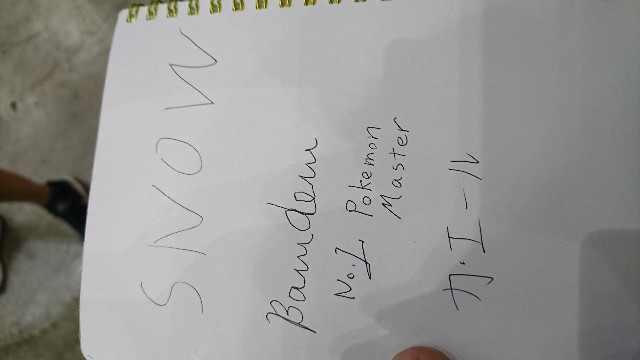 SNOW
Bamdem
No.1 Pokemon
Master
カ.エール